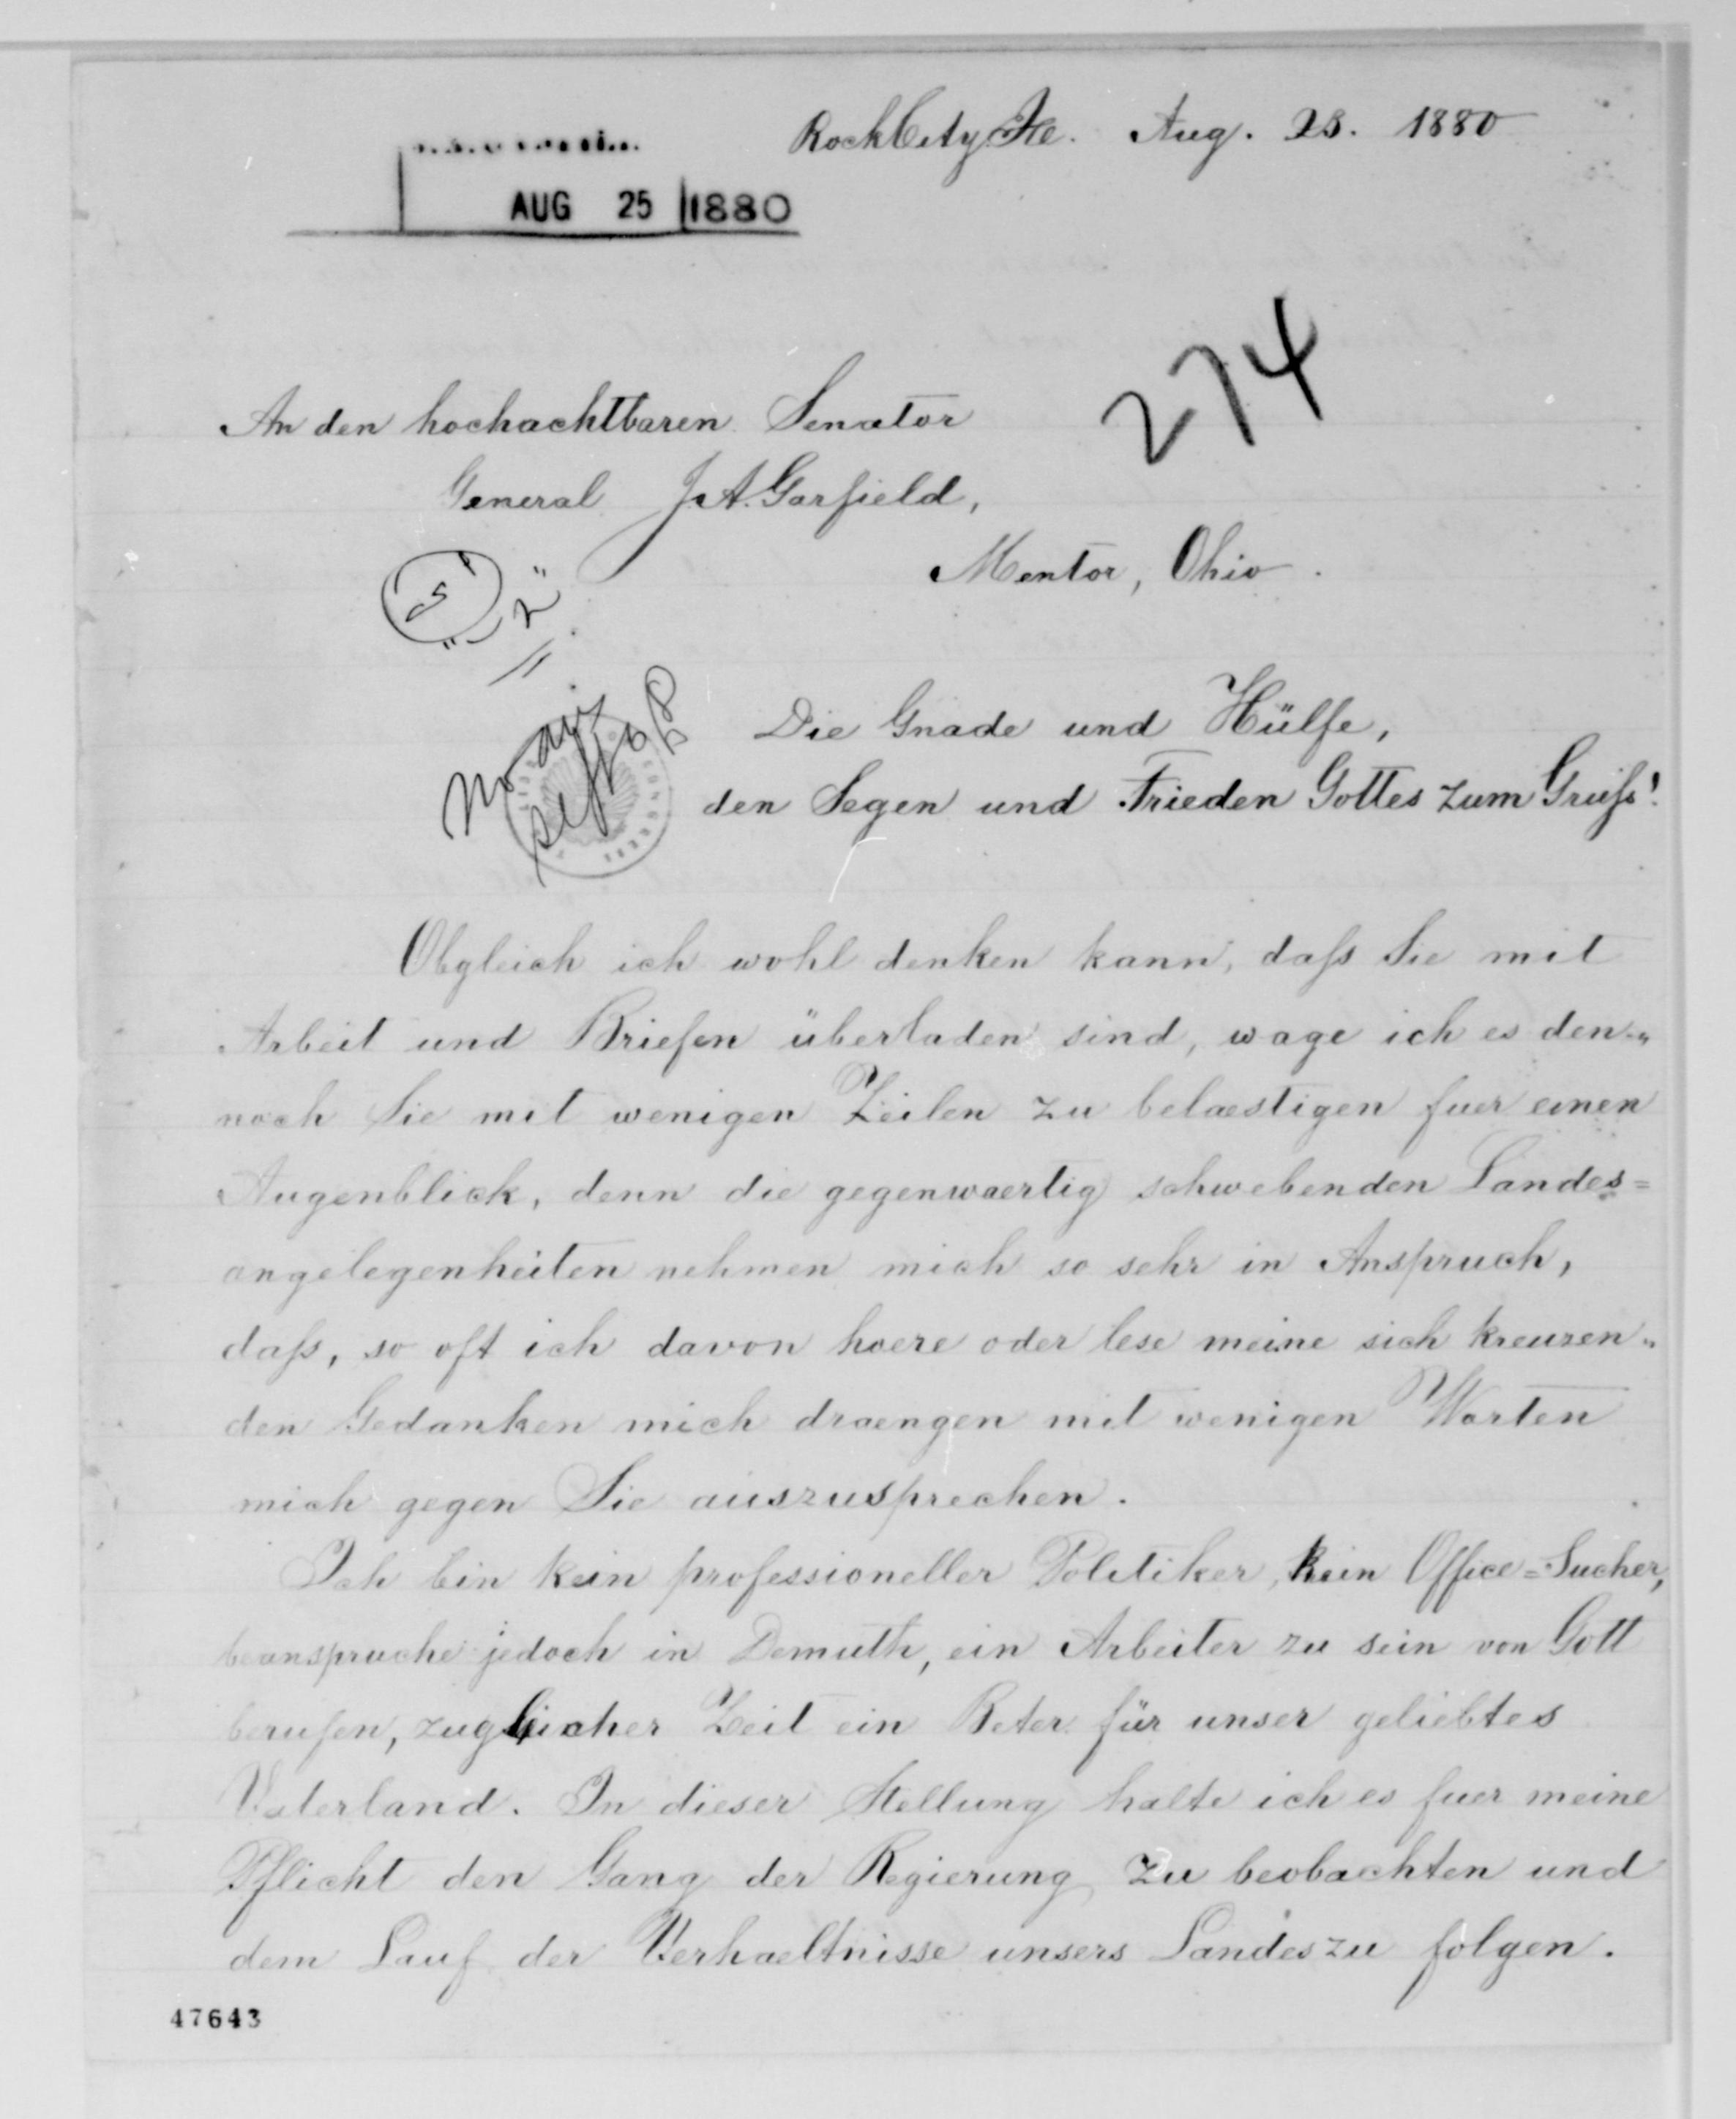 Rock City Ills. Aug. 23. 1880
AUG 25 1880
274
An den hochachtbaren Senator
General J. A. Garfield,
Mentor, Ohio.
Die Gnade und Hülfe,
den Segen und Frieden Gottes zum Gruſs!
Obgleich ich wohl denken kann, daſs Sie mit
Arbeit und Briefen überladen sind, wage ich es den-
noch Sie mit wenigen Zeilen zu belaestigen fuer einen
Augenblick, denn die gegenwaertig schwebenden Landes=
angelegenheiten nehmen mich so sehr in Anspruch,
daſs, so oft ich davon hoere oder lese meine sich kreuzen-
den Gedanken mich draengen mit wenigen Worten
mich gegen Sie auszusprechen.
Ich bin kein professioneller Politiker, kein Office=Sucher,
beanspruche jedoch in Demuth, ein Arbeiter zu sein von Gott
berufen, zugleicher Zeit ein Beter für unser geliebtes
Vaterland. In dieser Stellung halte ich es fuer meine
Pflicht den Gang der Regierung zu beobachten und
dem Lauf der Verhaeltnisse unsers Landes zu folgen.
47643